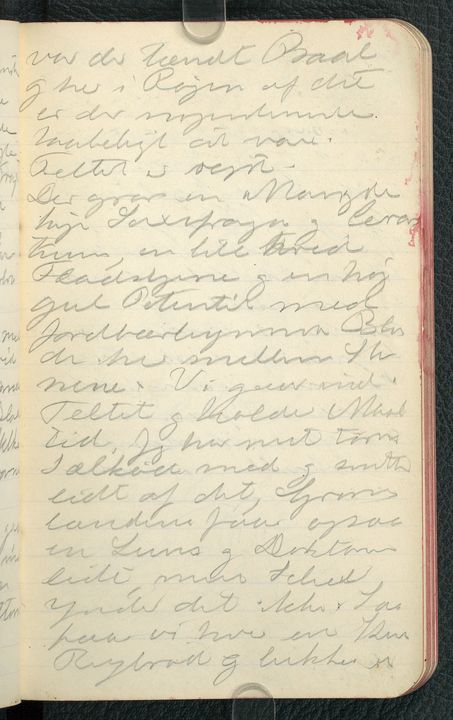 var der tændt Baal
og her i Røgen af det
er der nogenlunde
taaleligt at være.
Teltet er rejst.
Der gror en Mængde
høje Saxifraga og Ceras
tium, en lille bred
og en høj
gul Potentil med
Jordbærlignende Bla
de her mellem Ste
nene. Vi gaar ind i
Teltet og holder Maal
tid. Jeg har noget tørret
Sælkød med og
lidt af det, Grøn
lænderne faar ogsaa
en Luns og Doktoren
lidt, men
ynder det ikke. Saa
faar vi hver en Skive
Rugbrød og lukker